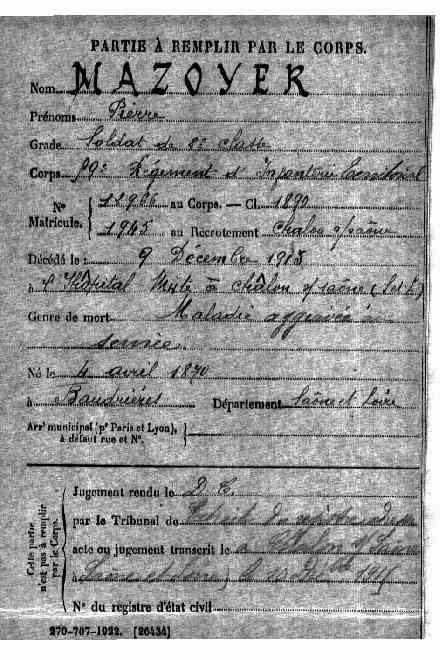 PARTIE À REMPLIR PAR LE CORPS.
Nom MAZOYER
Prénoms Pierre
Grade Soldat de 2e classe
Corps 59e Régiment d'Infanterie Territorial
Nº Matricule. au Corps. — Cl. 1890
1945 au Recrutement Chalon s/Saône
Décédé le : 9 Décembre 1915
à l'Hôpital Mixte à Chalon s/Saône (S et L)
Genre de mort Maladie aggravée en
service.
Né le 4 avril 1870
à Baudrières Département Saône et Loire
Arrt municipal (pr Paris et Lyon),
à défaut rue et Nº.
Cette partie
n'est pas à remplir
par le Corps.
Jugement rendu le D. C.
par le Tribunal de
acte ou jugement transcrit le
Nº du registre d'état civil
270-707-1922. [26434]